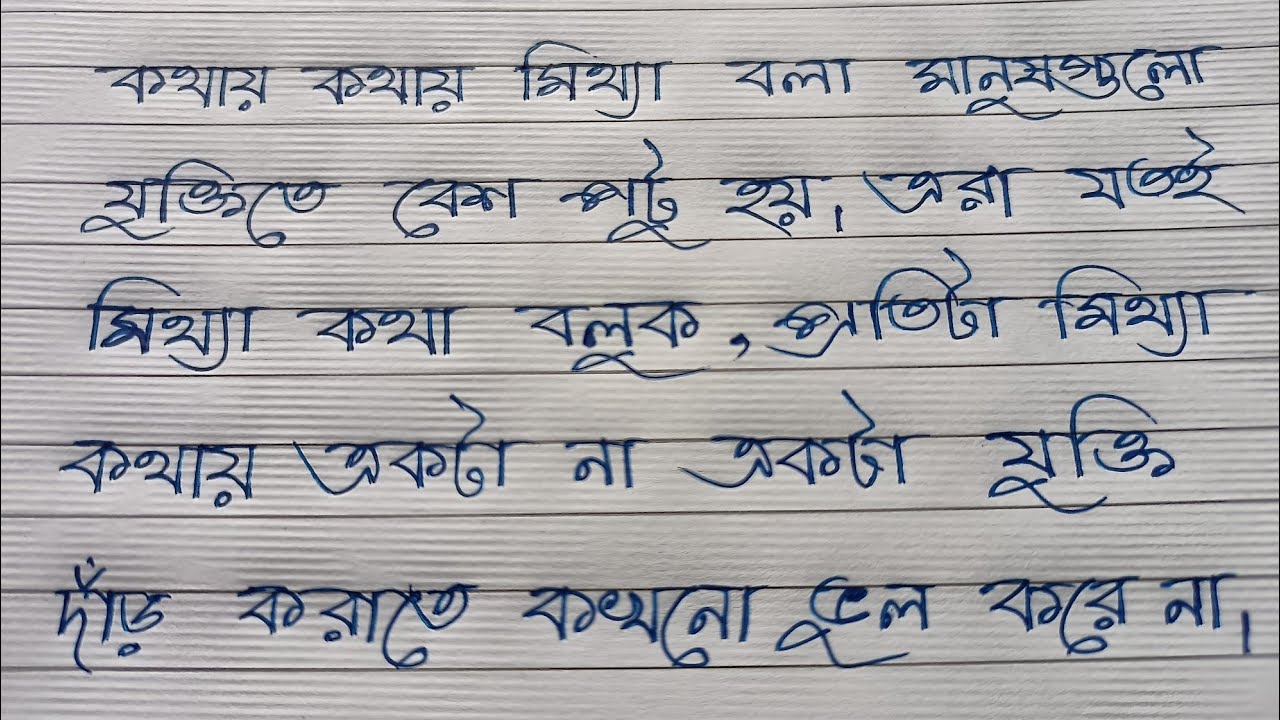 কথায় কথায় মিথ্যা বলা মানুষগুলো
যুক্তিতে বেশ পটু হয়। এরা যতই
মিথ্যা কথা বলুক, প্রতিটা মিথ্যা
কথায় একটা না একটা যুক্তি
দাঁড় করাতে কখনো ভুল করে না।